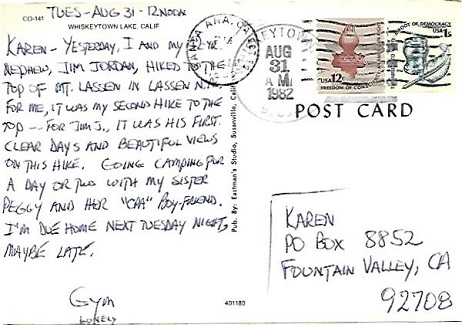 TUES - AUG 31 - 12 NOON
CO-141
WHISKEYTOWN LAKE, CALIF
KAREN - YESTERDAY, I AND MY
NEPHEW, JIM JORDAN, HIKED TO THE
TOP OF MT. LASSEN IN LASSEN N.P.
FOR ME, IT WAS MY SECOND HIKE TO THE
TOP -- FOR JIM J., IT WAS HIS FIRST.
CLEAR DAYS AND BEAUTIFUL VIEWS
ON THIS HIKE. GOING CAMPING FOR
A DAY OR TWO WITH MY SISTER
PEGGY AND HER "CPA" BOY-FRIEND.
I'M DUE HOME NEXT TUESDAY NIGHT,
MAYBE LATE.
Gym
LONELY
Pub. By: Eastman's Studio, Susanville, Calif.
SANTA ANA, CALIF
AUG
31
AM
1982
USA 12c
FREEDOM OF CONSCIENCE
OF DEMOCRACY
USA 1c
POST CARD
KAREN
PO BOX 8852
FOUNTAIN VALLEY, CA
92708
401180